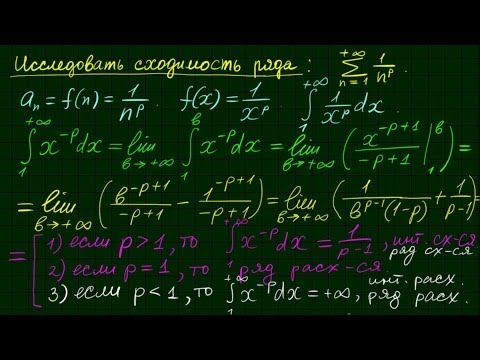 Исследовать сходимость ряда: $\sum_{n=1}^{+\infty} \frac{1}{n^p}$.
$a_n = f(n) = \frac{1}{n^p}$. $f(x) = \frac{1}{x^p}$. $\int_1^{+\infty} \frac{1}{x^p} dx$.
$\int_1^{+\infty} x^{-p} dx = \lim_{b \to +\infty} \int_1^b x^{-p} dx = \lim_{b \to +\infty} \left( \frac{x^{-p+1}}{-p+1} \Big|_1^b \right) =$
$= \lim_{b \to +\infty} \left( \frac{b^{-p+1}}{-p+1} - \frac{1^{-p+1}}{-p+1} \right) = \lim_{b \to +\infty} \left( \frac{1}{b^{p-1}(1-p)} + \frac{1}{p-1} \right) =$
= [ 1) если p > 1, то $\int_1^{+\infty} x^{-p} dx = \frac{1}{p-1}$, инт. сх-ся ряд сх-ся
2) если p = 1, то ряд расх-ся.
3) если p < 1, то $\int_1^{+\infty} x^{-p} dx = +\infty$, инт. расх. ряд расх.